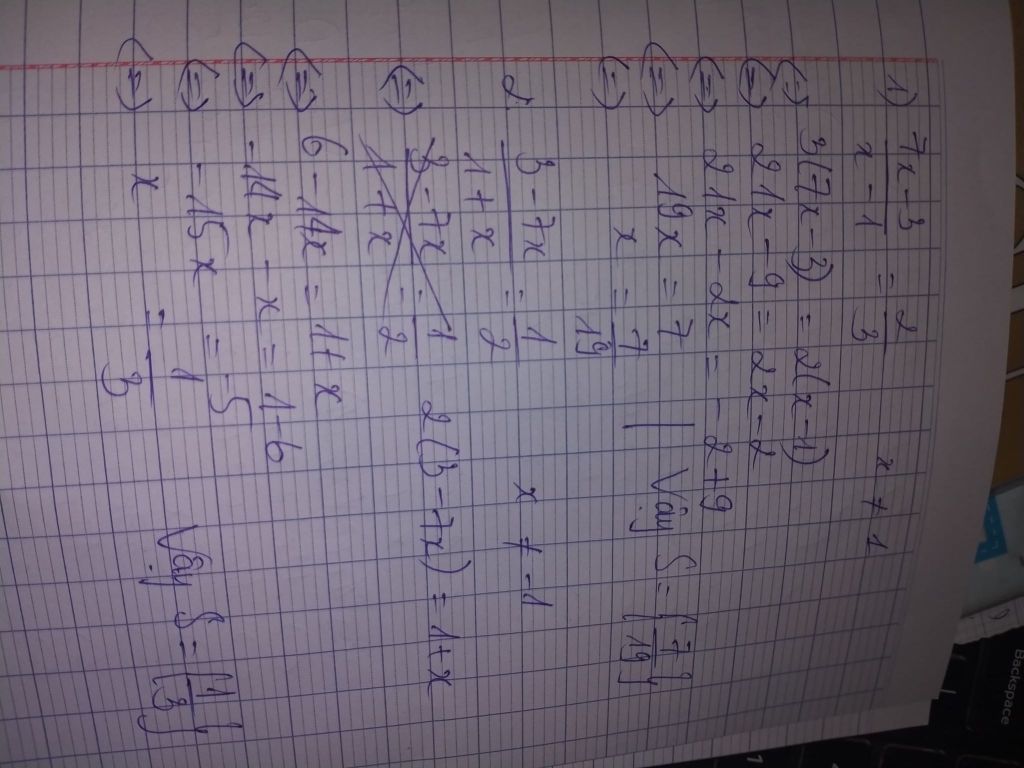 1) \frac{7x-3}{x-1} = \frac{2}{3} x ≠ 1
(=) 3(7x-3) = 2(x-1)
(=) 21x - 9 = 2x - 2
(=) 21x - 2x = -2+9
(=) 19x = 7
(=) x = \frac{7}{19} | Vậy S = {\frac{7}{19}}
2. \frac{3-7x}{1+x} = \frac{1}{2} x ≠ -1
(=) 2(3-7x) = 1+x
6 - 14x = 1+x
(=) -14x - x = 1-6
(=) -15x = -5
(=) x = \frac{1}{3} Vậy S = {\frac{1}{3}}
Backspace